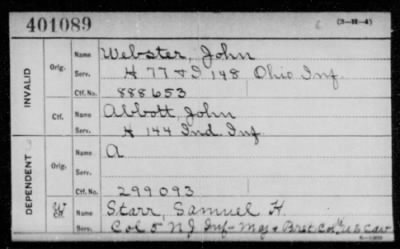 401089
(3-111-4)
INVALID
Orig.
Name Webster, John
Serv. H 77 & I 148 Ohio Inf.
Ctf. No. 888653
Ctf.
Name Abbott, John
Serv. H 144 Ind. Inf.
DEPENDENT
Orig.
Name A
Serv.
Ctf. No. 299093
Ctf.
Name Starr, Samuel H.
Serv. Col 5 NJ Inf - Maj & Bvet Col U S Cav